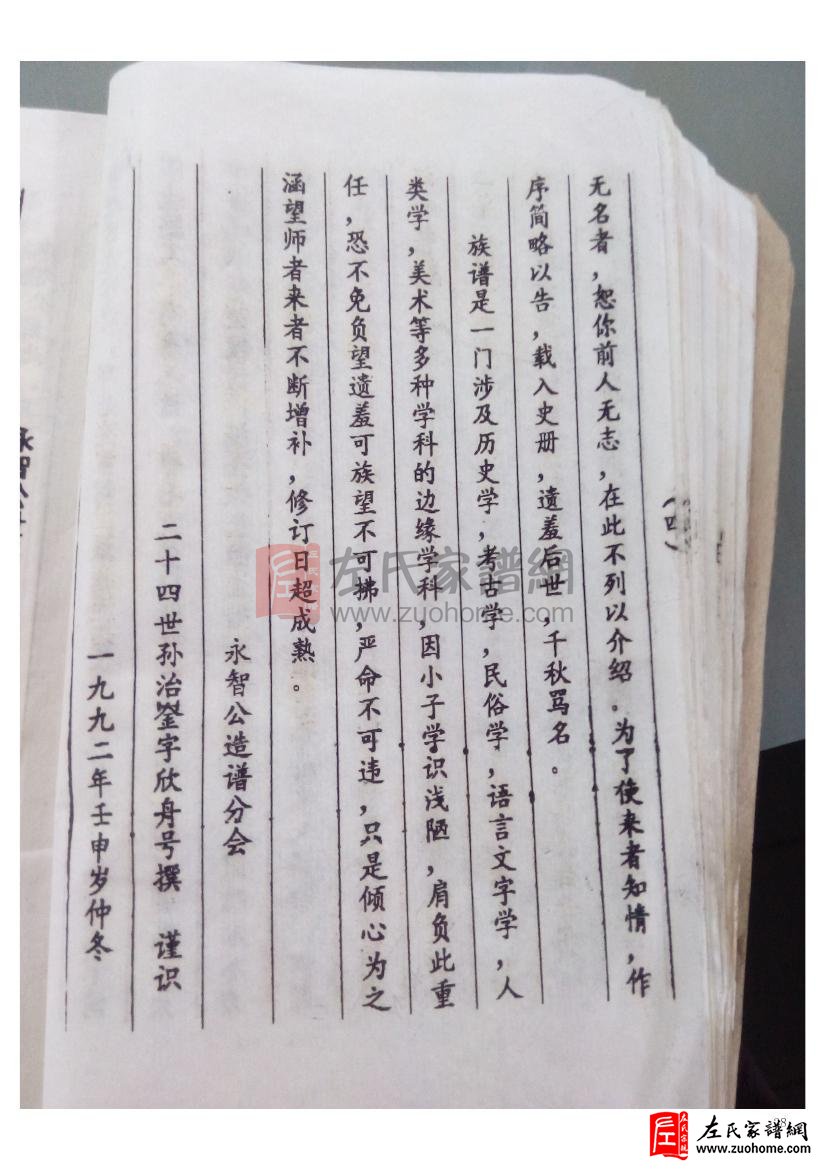 (四)
无名者，恕你前人无志，在此不列以介绍。为了使来者知情，作
序简略以告，载入史册，遗羞后世，千秋骂名。
族谱是一门涉及历史学，考古学，民俗学，语言文字学，人
类学，美术等多种学科的边缘学科，因小子学识浅陋，肩负此重
任，恐不免负望遗羞可族望不可拂，严命不可违，只是倾心为之
涵望师者来者不断增补，修订日超成熟。
永智公造谱分会
二十四世孙治銮字欣舟号撰 谨识
一九九二年壬申岁仲冬
永智公
左氏家譜網
www.zuohome.com
左氏家譜網
www.zuohome.com